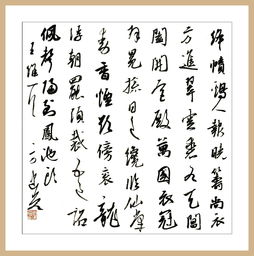 絳幘鷄人報曉籌尚衣
方進翠雲裘九天閶
闔開宮殿萬國衣冠
拜冕旒日色才臨仙掌
動香煙欲傍袞龍
浮朝罷須裁五色詔
佩聲歸到鳳池頭
王維